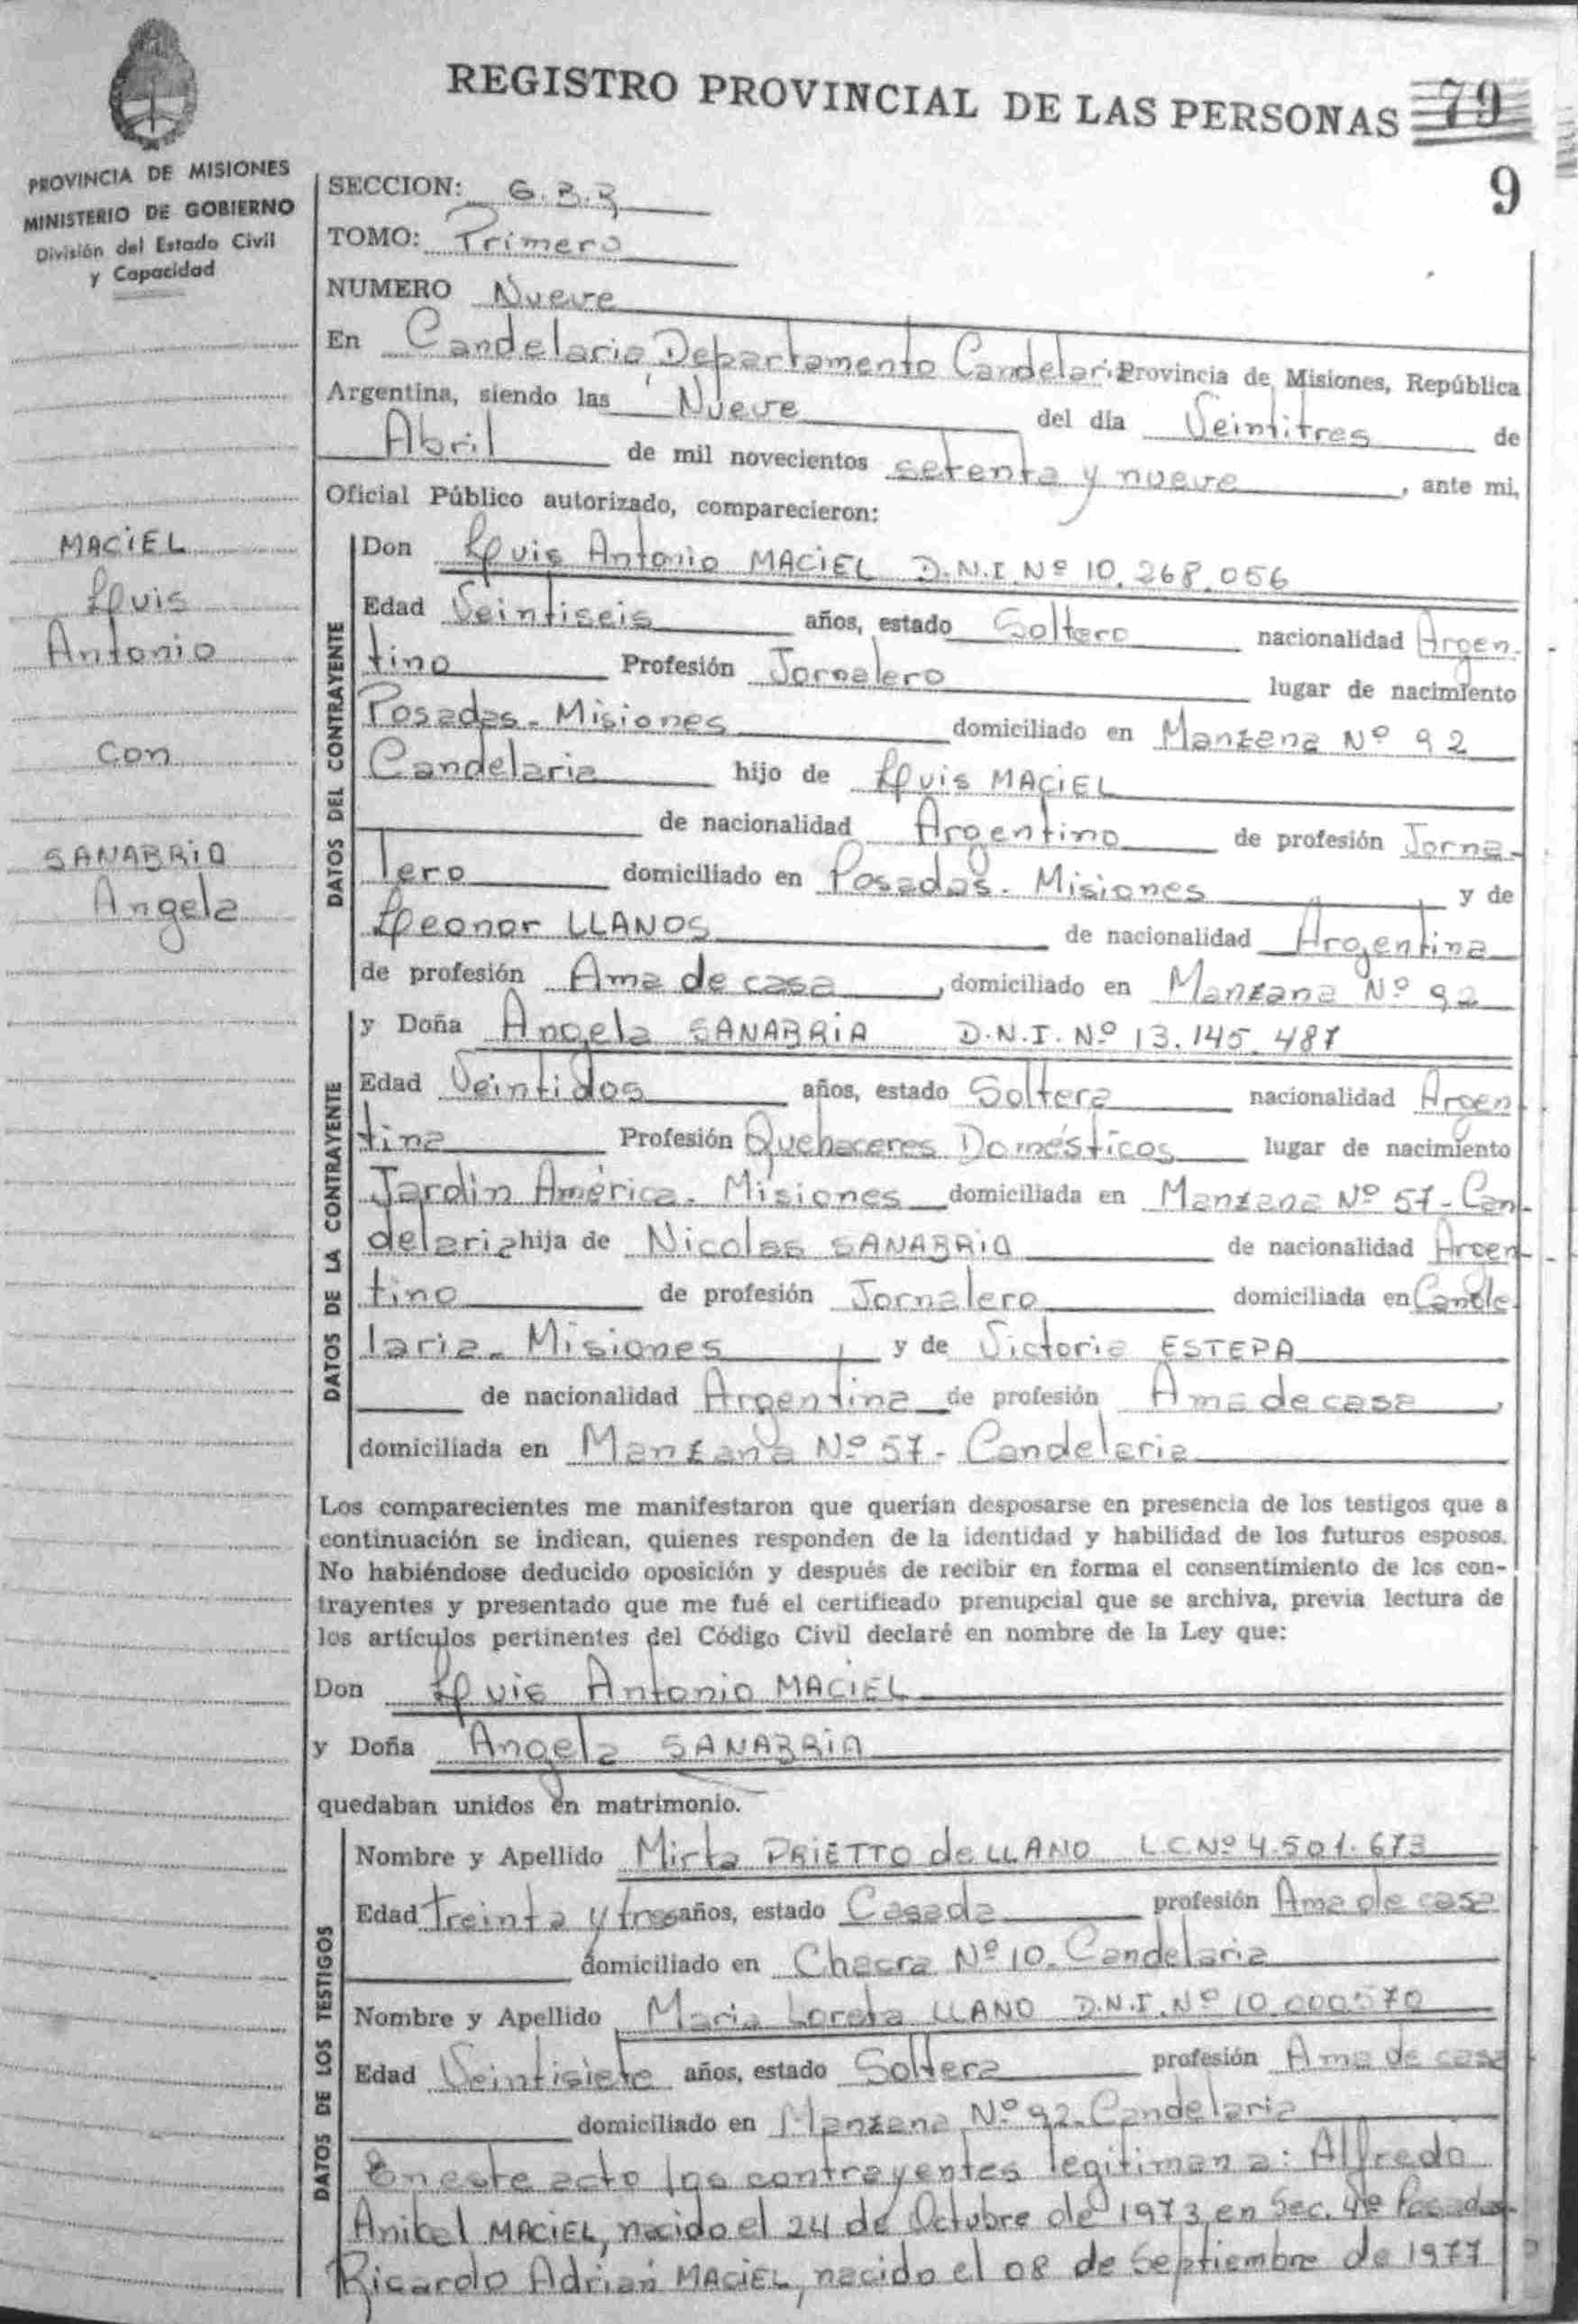 REGISTRO PROVINCIAL DE LAS PERSONAS 79
9
PROVINCIA DE MISIONES
MINISTERIO DE GOBIERNO
División del Estado Civil
y Capacidad
MACIEL
Luis
Antonio
con
SANABRIA
Angela
SECCION:
TOMO: Primero
NUMERO Nueve
En Candelaria Departamento Candelaria Provincia de Misiones, República
Argentina, siendo las Nueve del día Veintitres de
Abril de mil novecientos setenta y nueve, ante mi,
Oficial Público autorizado, comparecieron:
DATOS DEL CONTRAYENTE
Don Luis Antonio MACIEL D.N.I. Nº 10.268.056
Edad Veintiseis años, estado Soltero nacionalidad Argen-
tino Profesión Jornalero lugar de nacimiento
Posadas - Misiones domiciliado en Manzana Nº 92
Candelaria hijo de Luis MACIEL
de nacionalidad Argentino de profesión Jorna-
lero domiciliado en Posadas - Misiones y de
Leonor LLANOS de nacionalidad Argentina
de profesión Ama de casa, domiciliado en Manzana Nº 92
DATOS DE LA CONTRAYENTE
y Doña Angela SANABRIA D.N.I. Nº 13.145.487
Edad Veintidos años, estado Soltera nacionalidad Argen
tina Profesión Quehaceres Domésticos lugar de nacimiento
Jardin América - Misiones domiciliada en Manzana Nº 57 - Can-
delaria hija de Nicolas SANABRIA de nacionalidad Argen-
tino de profesión Jornalero domiciliada en Cande-
laria - Misiones y de Victoria ESTEPA
de nacionalidad Argentina de profesión Ama de casa,
domiciliada en Manzana Nº 57 - Candelaria
Los comparecientes me manifestaron que querían desposarse en presencia de los testigos que a
continuación se indican, quienes responden de la identidad y habilidad de los futuros esposos.
No habiéndose deducido oposición y después de recibir en forma el consentimiento de los con-
trayentes y presentado que me fué el certificado prenupcial que se archiva, previa lectura de
los artículos pertinentes del Código Civil declaré en nombre de la Ley que:
Don Luis Antonio MACIEL
y Doña Angela SANABRIA
quedaban unidos en matrimonio.
DATOS DE LOS TESTIGOS
Nombre y Apellido Mirta PRIETTO de LLANO L.C Nº 4.501.673
Edad Treinta y tres años, estado Casada profesión Ama de casa
domiciliado en Chacra Nº 10 - Candelaria
Nombre y Apellido Maria Loreta LLANO D.N.I. Nº 10.000570
Edad Veintisiete años, estado Soltera profesión Ama de casa
domiciliado en Manzana Nº 92 - Candelaria
En este acto los contrayentes legitiman a: Alfredo
Anibel MACIEL, nacido el 24 de Octubre de 1973, en Sec. 4º Posadas-
Ricardo Adrian MACIEL, nacido el 08 de Septiembre de 1977